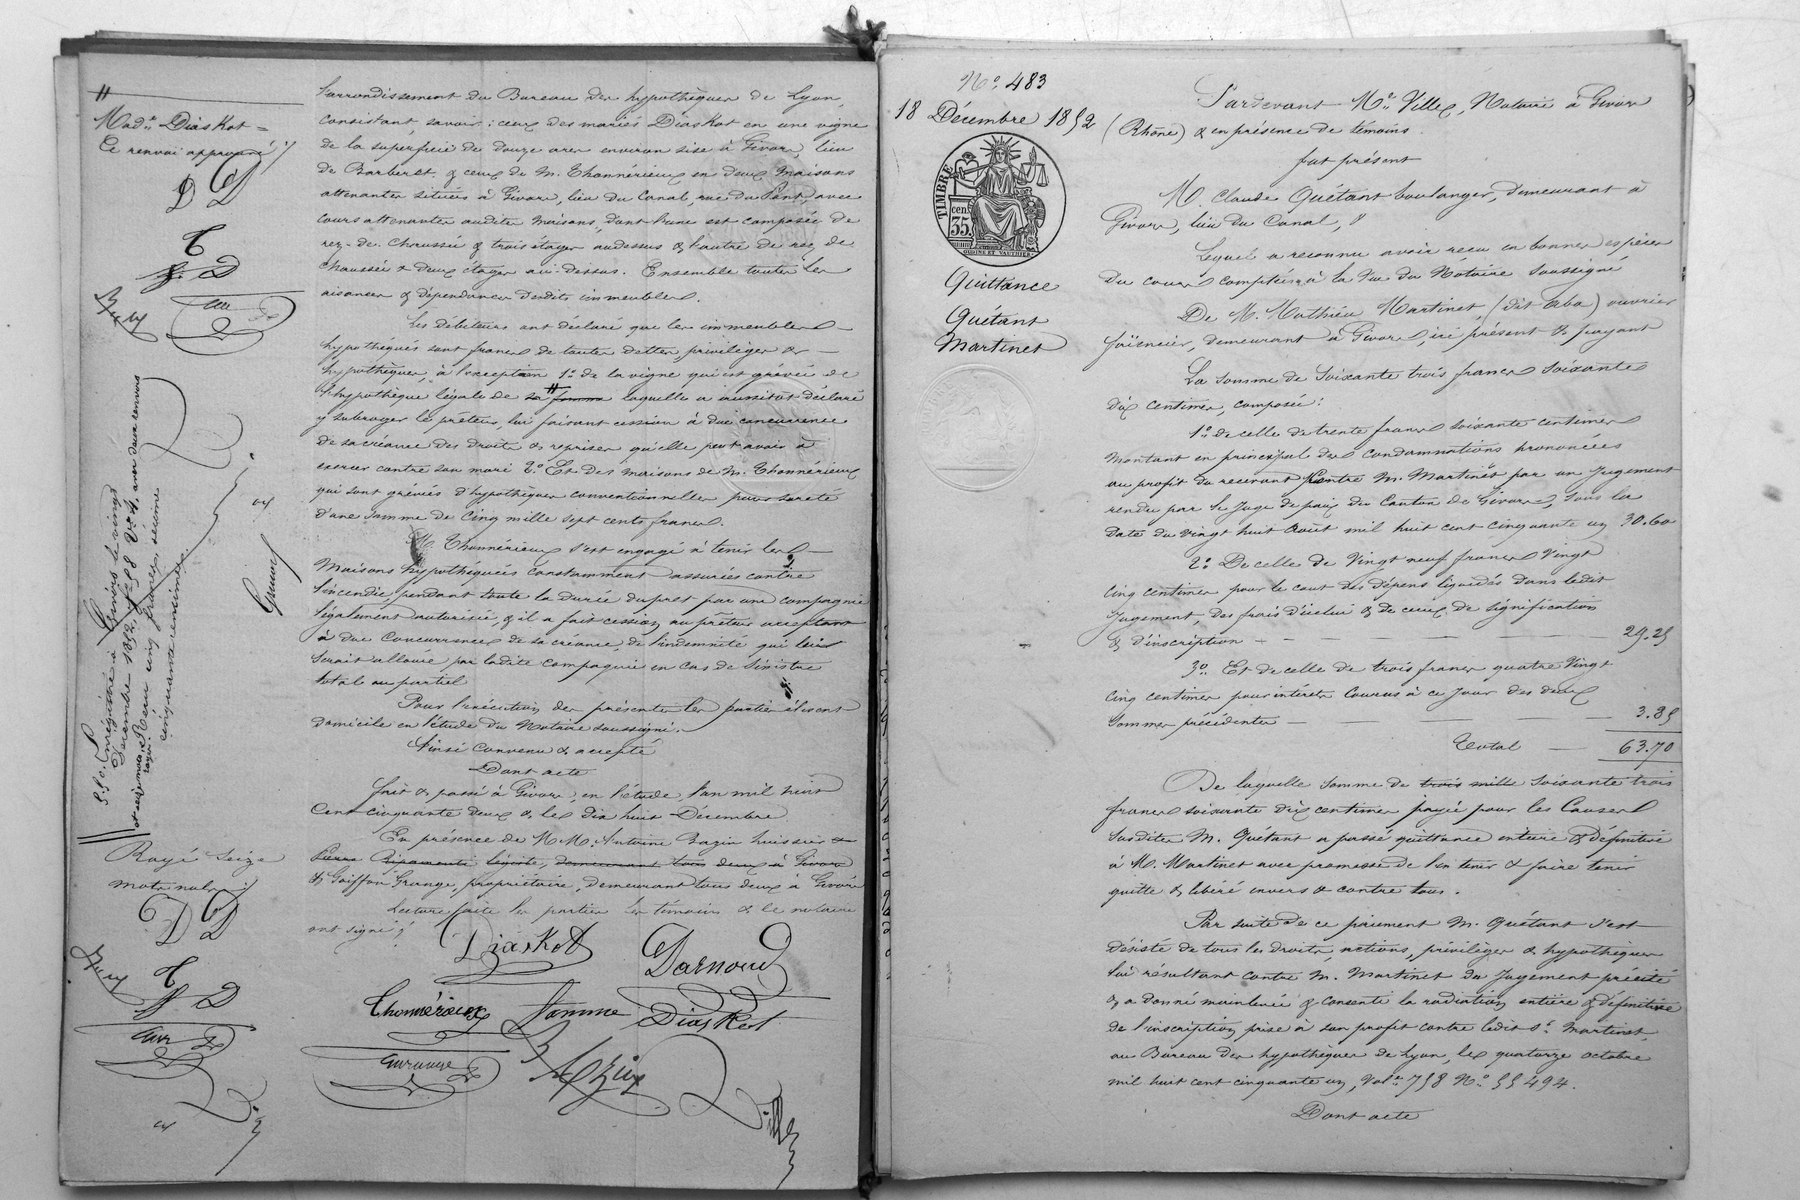 Mad.e Diaskot =
Ce renvoi approuvé
D D
C
D
l'arrondissement du Bureau des hypothèques de Lyon,
consistant, savoir : ceux des mariés Diaskot en une vigne
de la superficie de douze ares environ sise à Givors, lieu
de Barberet, & ceux de M. Thonnérieux en deux maisons
attenantes situées à Givors, lieu du Canal, rue du Pont, avec
cours attenantes auxdites maisons, dont l'une est composée de
rez-de-chaussée & trois étages au dessus & l'autre de rez de
chaussée & deux étages au-dessus. Ensemble toutes les
aisances & dépendances desdits immeubles.
Les débiteurs ont déclaré que les immeubles
hypothéqués sont francs de toutes dettes privilèges &
hypothèques, à l'exception 1.o de la vigne qui est grévée de
l'hypothèque légale de sa femme laquelle a aussitôt déclaré
y subroger le prêteur, lui faisant cession à due concurrence
de sa créance des droits & reprises qu'elle peut avoir à
exercer contre son mari 2.o Et des maisons de M. Thonnérieux
qui sont grévées d'hypothèques conventionnelles pour sureté
d'une somme de Cinq mille sept cents francs.
M. Thonnérieux s'est engagé à tenir les
maisons hypothéquées constamment assurées contre
l'incendie pendant toute la durée du prêt par une compagnie
légalement autorisée, & il a fait cession au prêteur acceptant
à due concurrence de sa créance, de l'indemnité qui lui
serait allouée par ladite compagnie en cas de sinistre
total ou partiel
Pour l'exécution des présentes les parties élisent
domicile en l'étude du Notaire soussigné.
Ainsi convenu & accepté
Dont acte
Fait & passé à Givors, en l'étude, l'an mil huit
Cent cinquante deux & le dix huit Décembre
En présence de M.M. Antoine Ragin huissier &
Pierre Ripamenti lépiste, demeurant tous deux à Givors
& Goiffon Grange, propriétaire, demeurant tous deux à Givors
Lecture faite les parties les témoins & le notaire
ont signé
Diaskot
Darnoud
Thonnérieux
Diaskot
Enregistré à Givors le vingt
Décembre 1852, f.o 58 V.o 4, avec deux renvois
et seize mots rayés. Reçu cinq francs, décime
cinquante centimes
Rayé Seize
mots nuls
D D
C
D
N.o 483
18 Décembre 1852
TIMBRE
35 cen.
Quittance
Quétant
Martinet
Pardevant M.e Villex, Notaire à Givors
(Rhône) & en présence de témoins
fut présent
M. Claude Quétant boulanger, demeurant à
Givors, lieu du Canal,
Lequel a reconnu avoir reçu en bonnes espèces
du cours comptées à la vue du Notaire soussigné
De M. Mathieu Martinet, (dit Aba) ouvrier
foïencier, demeurant à Givors, ici présent & payant
La somme de soixante trois francs soixante
dix centimes, composée :
1.o de celle de trente francs soixante centimes
montant en principal des condamnations prononcées
au profit du recevant contre M. Martinet par un Jugement
rendu par le Juge de paix du Canton de Givors, sous la
date du vingt huit août mil huit cent cinquante un 30.60
2.o De celle de Vingt neuf francs Vingt
cinq centimes pour le cout des dépens liquidés dans ledit
Jugement, des frais d'icelui & de ceux de signification
& d'inscription 29.25
3.o Et de celle de trois francs quatre Vingt
cinq centimes pour intérêts courus à ce jour des deux
sommes précédentes 3.85
Total 63.70
De laquelle somme de trois mille soixante trois
francs soixante dix centimes payée pour les causes
susdites M. Quétant a passé quittance entière & définitive
à M. Martinet avec promesse de l'en tenir & faire tenir
quitte & libéré envers & contre tous.
Par suite de ce paiement M. Quétant s'est
désisté de tous les droits, actions, privilèges & hypothèques
lui résultant contre M. Martinet du Jugement précité
& a donné mainlevée & consenti la radiation entière & définitive
de l'inscription prise à son profit contre ledit S.r Martinet,
au Bureau des hypothèques de Lyon, le quatorze octobre
mil huit cent cinquante un, Vol.e 758 N.o 55494.
Dont acte